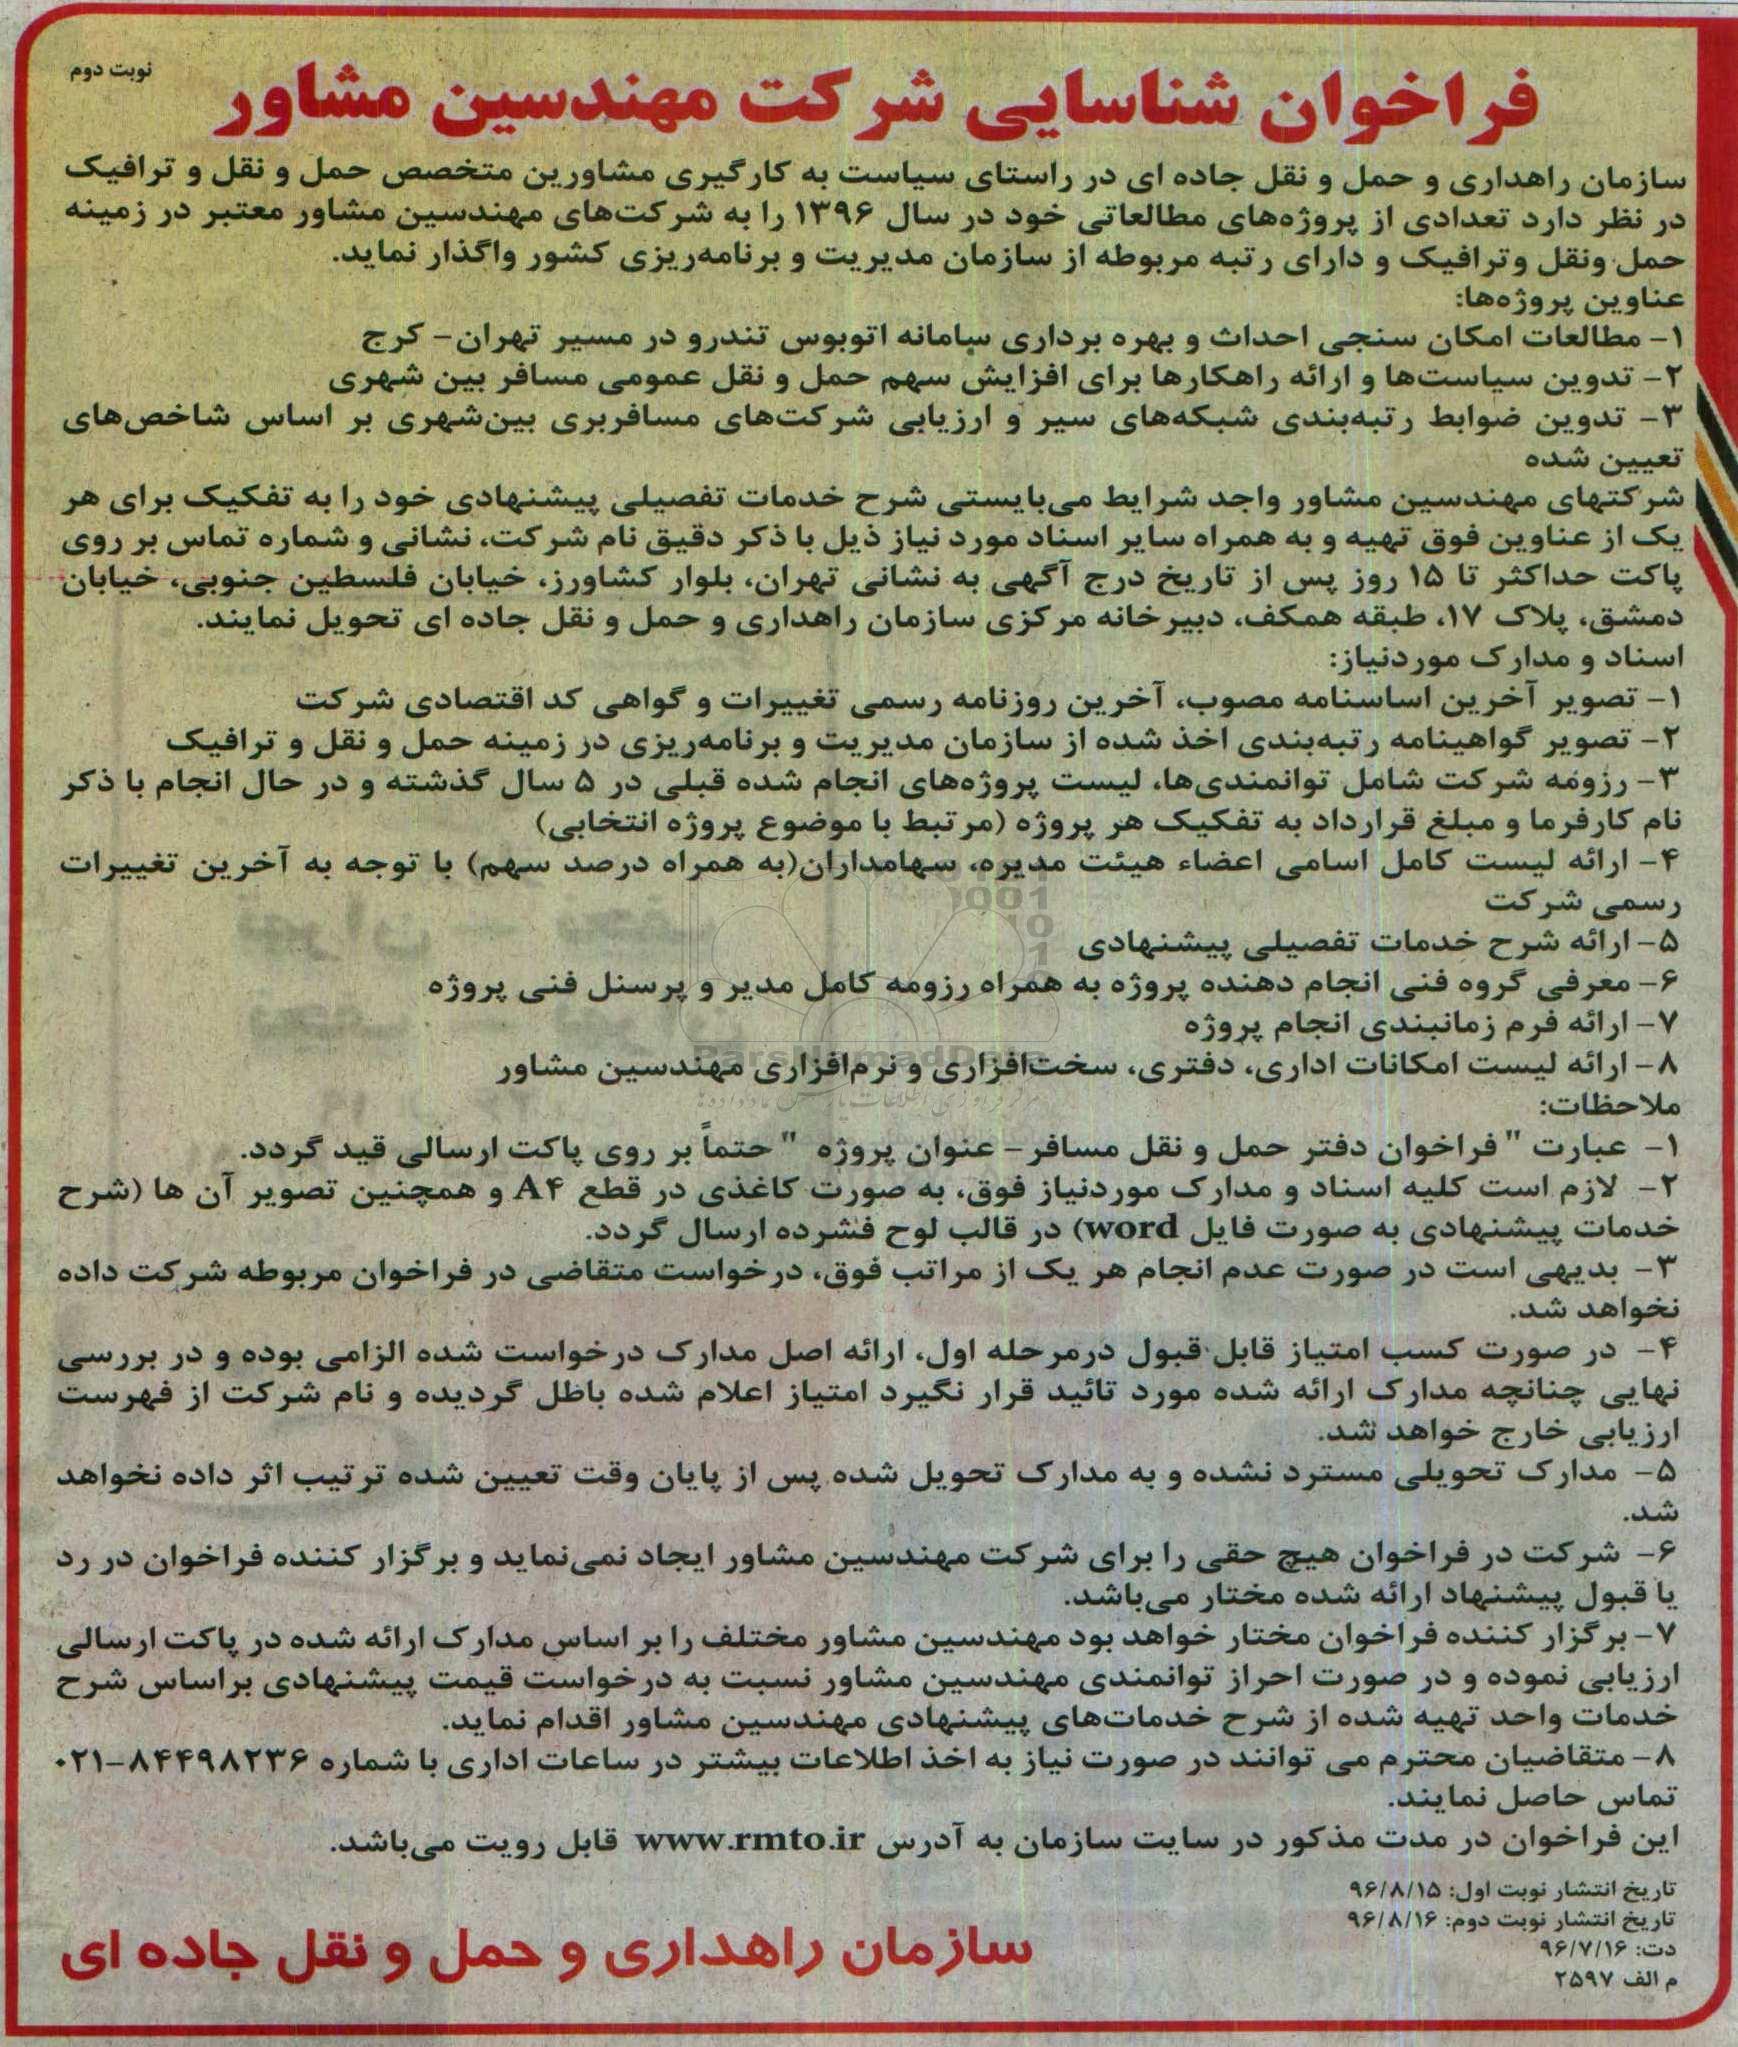 نوبت دوم
فراخوان شناسایی شرکت مهندسین مشاور
سازمان راهداری و حمل و نقل جاده ای در راستای سیاست به کارگیری مشاورین متخصص حمل و نقل و ترافیک
در نظر دارد تعدادی از پروژه‌های مطالعاتی خود در سال ۱۳۹۶ را به شرکت‌های مهندسین مشاور معتبر در زمینه
حمل ونقل وترافیک و دارای رتبه مربوطه از سازمان مدیریت و برنامه‌ریزی کشور واگذار نماید.
عناوین پروژه‌ها:
۱- مطالعات امکان سنجی احداث و بهره برداری سامانه اتوبوس تندرو در مسیر تهران- کرج
۲- تدوین سیاست‌ها و ارائه راهکارها برای افزایش سهم حمل و نقل عمومی مسافر بین شهری
۳- تدوین ضوابط رتبه‌بندی شبکه‌های سیر و ارزیابی شرکت‌های مسافربری بین‌شهری بر اساس شاخص‌های
تعیین شده
شرکتهای مهندسین مشاور واجد شرایط می‌بایستی شرح خدمات تفصیلی پیشنهادی خود را به تفکیک برای هر
یک از عناوین فوق تهیه و به همراه سایر اسناد مورد نیاز ذیل با ذکر دقیق نام شرکت، نشانی و شماره تماس بر روی
پاکت حداکثر تا ۱۵ روز پس از تاریخ درج آگهی به نشانی تهران، بلوار کشاورز، خیابان فلسطین جنوبی، خیابان
دمشق، پلاک ۱۷، طبقه همکف، دبیرخانه مرکزی سازمان راهداری و حمل و نقل جاده ای تحویل نمایند.
اسناد و مدارک موردنیاز:
۱- تصویر آخرین اساسنامه مصوب، آخرین روزنامه رسمی تغییرات و گواهی کد اقتصادی شرکت
۲- تصویر گواهینامه رتبه‌بندی اخذ شده از سازمان مدیریت و برنامه‌ریزی در زمینه حمل و نقل و ترافیک
۳- رزومه شرکت شامل توانمندی‌ها، لیست پروژه‌های انجام شده قبلی در ۵ سال گذشته و در حال انجام با ذکر
نام کارفرما و مبلغ قرارداد به تفکیک هر پروژه (مرتبط با موضوع پروژه انتخابی)
۴- ارائه لیست کامل اسامی اعضاء هیئت مدیره، سهامداران(به همراه درصد سهم) با توجه به آخرین تغییرات
رسمی شرکت
۵- ارائه شرح خدمات تفصیلی پیشنهادی
۶- معرفی گروه فنی انجام دهنده پروژه به همراه رزومه کامل مدیر و پرسنل فنی پروژه
۷- ارائه فرم زمانبندی انجام پروژه
ParsNamadData
۸- ارائه لیست امکانات اداری، دفتری، سخت‌افزاری و نرم‌افزاری مهندسین مشاور
ملاحظات:
۱- عبارت " فراخوان دفتر حمل و نقل مسافر- عنوان پروژه " حتماً بر روی پاکت ارسالی قید گردد.
۲- لازم است کلیه اسناد و مدارک موردنیاز فوق، به صورت کاغذی در قطع A۴ و همچنین تصویر آن ها (شرح
خدمات پیشنهادی به صورت فایل word) در قالب لوح فشرده ارسال گردد.
۳- بدیهی است در صورت عدم انجام هر یک از مراتب فوق، درخواست متقاضی در فراخوان مربوطه شرکت داده
نخواهد شد.
۴- در صورت کسب امتیاز قابل قبول درمرحله اول، ارائه اصل مدارک درخواست شده الزامی بوده و در بررسی
نهایی چنانچه مدارک ارائه شده مورد تائید قرار نگیرد امتیاز اعلام شده باطل گردیده و نام شرکت از فهرست
ارزیابی خارج خواهد شد.
۵- مدارک تحویلی مسترد نشده و به مدارک تحویل شده پس از پایان وقت تعیین شده ترتیب اثر داده نخواهد
شد.
۶- شرکت در فراخوان هیچ حقی را برای شرکت مهندسین مشاور ایجاد نمی‌نماید و برگزار کننده فراخوان در رد
یا قبول پیشنهاد ارائه شده مختار می‌باشد.
۷- برگزار کننده فراخوان مختار خواهد بود مهندسین مشاور مختلف را بر اساس مدارک ارائه شده در پاکت ارسالی
ارزیابی نموده و در صورت احراز توانمندی مهندسین مشاور نسبت به درخواست قیمت پیشنهادی براساس شرح
خدمات واحد تهیه شده از شرح خدمات‌های پیشنهادی مهندسین مشاور اقدام نماید.
۸- متقاضیان محترم می توانند در صورت نیاز به اخذ اطلاعات بیشتر در ساعات اداری با شماره ۸۴۴۹۸۲۳۶-۰۲۱
تماس حاصل نمایند.
این فراخوان در مدت مذکور در سایت سازمان به آدرس www.rmto.ir قابل رویت می‌باشد.
تاریخ انتشار نوبت اول: ۹۶/۸/۱۵
تاریخ انتشار نوبت دوم: ۹۶/۸/۱۶
دت: ۹۶/۷/۱۶
م الف ۲۵۹۷
سازمان راهداری و حمل و نقل جاده ای